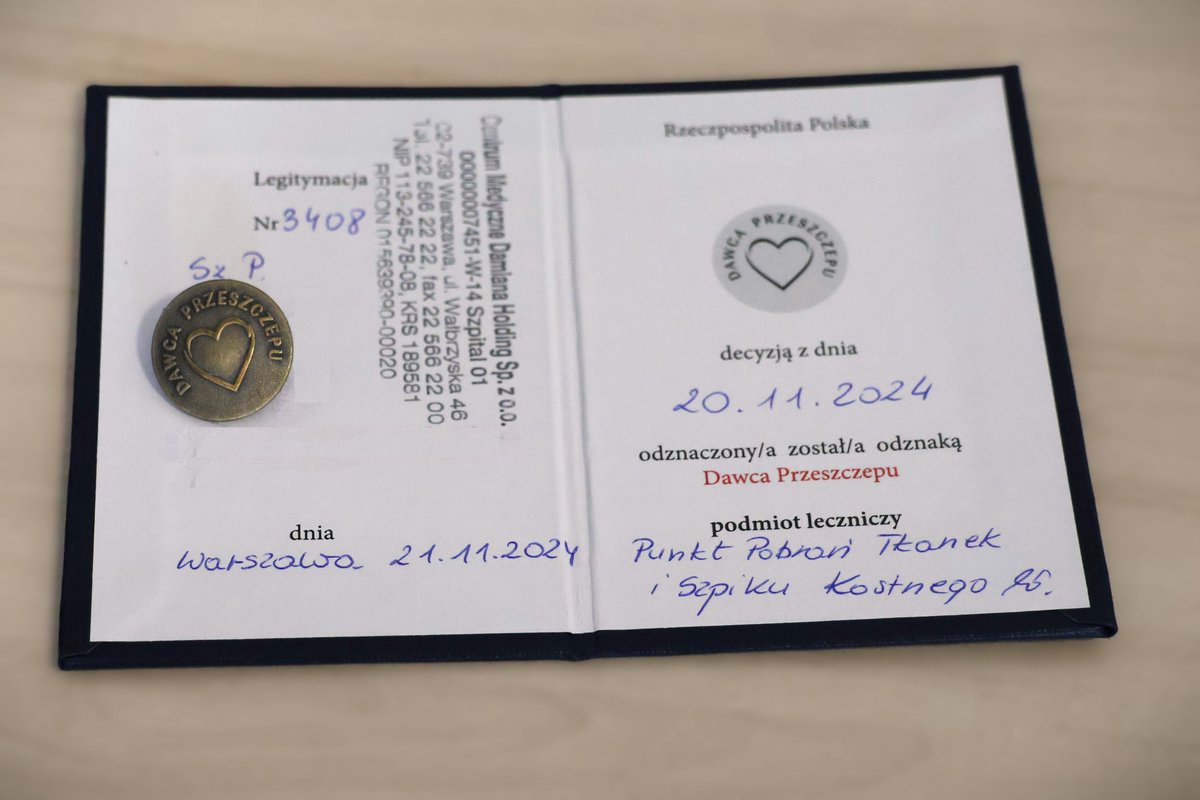 Legitymacja
Nr 3408
Sz P.
DAWCA PRZESZCZEPU
Centrum Medyczne Damiana Holding Sp. z o.o.
0000007451-W-14 Szpital 01
02-739 Warszawa, ul. Wałbrzyska 46
Tel. 22 566 22 22, fax 22 566 22 00
NIP 113-245-78-08, KRS 189581
REGON 015639390-00020
dnia
Warszawa 21.11.2024
Rzeczpospolita Polska
DAWCA PRZESZCZEPU
decyzją z dnia
20.11.2024
odznaczony/a został/a odznaką
Dawca Przeszczepu
podmiot leczniczy
Punkt Pobrań Tkanek
i Szpiku Kostnego